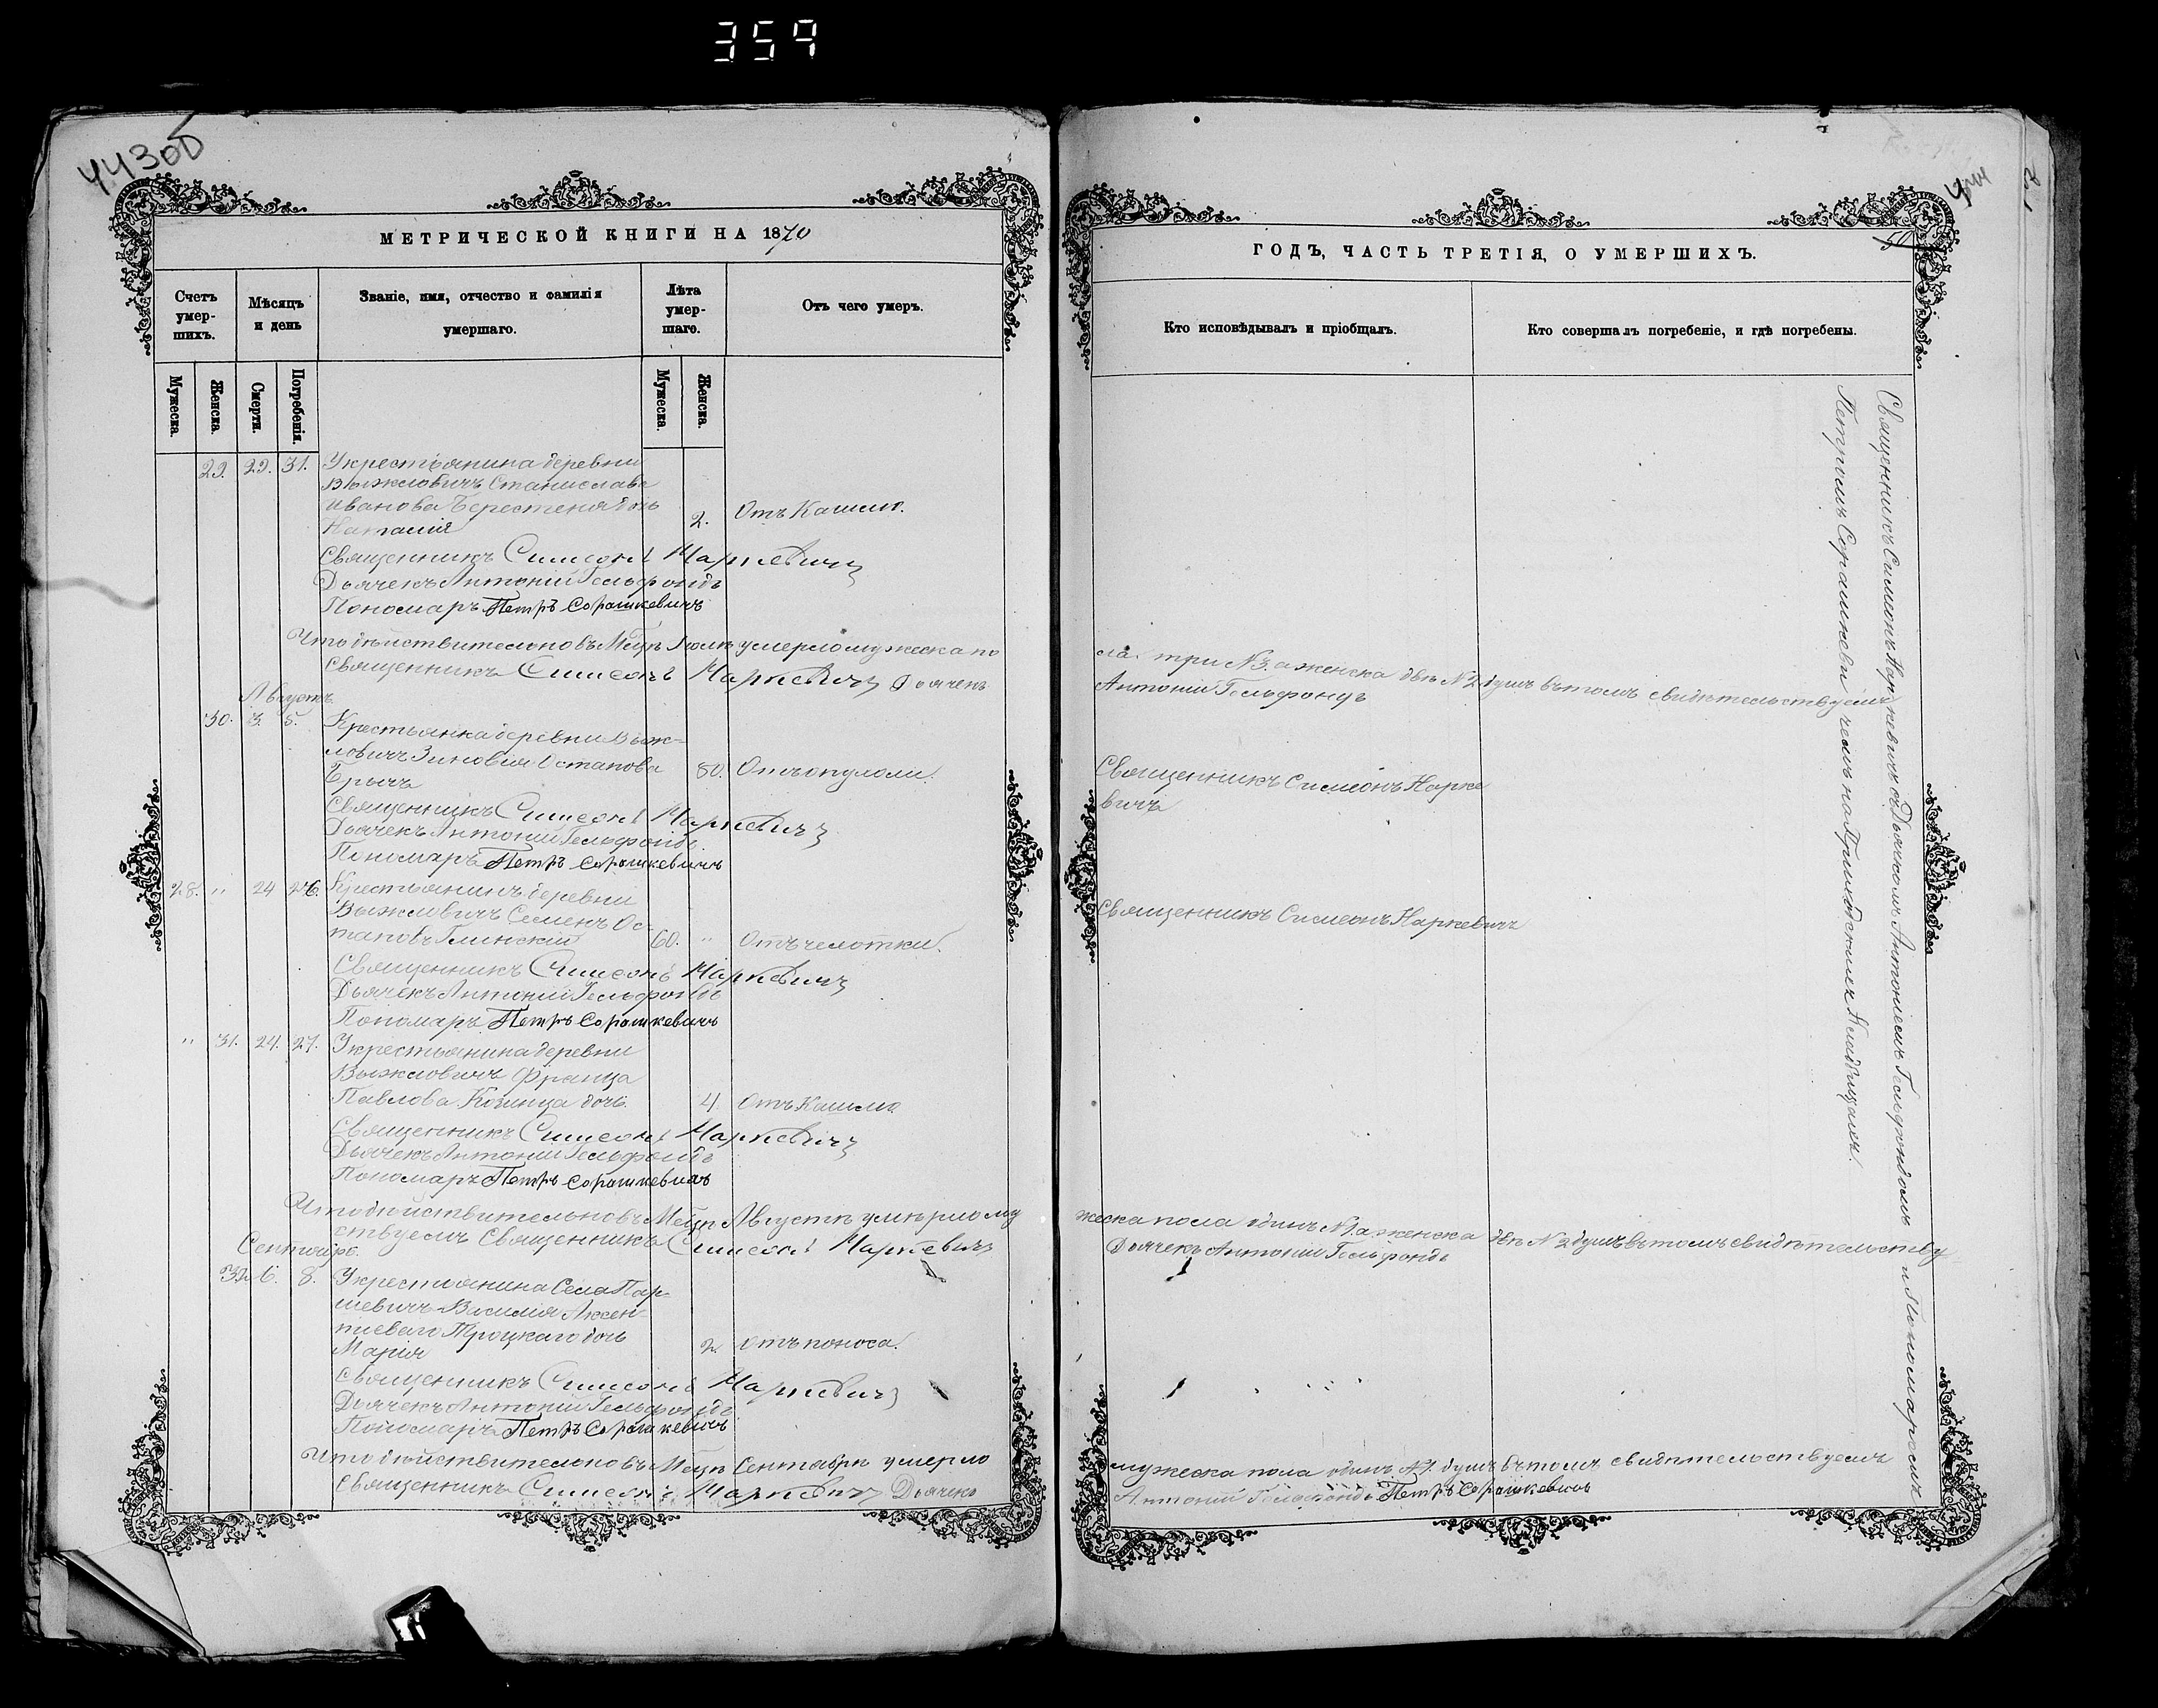 359
443об
444
50
МЕТРИЧЕСКОЙ КНИГИ НА 1870
Счетъ умер-шихъ.
Мѣсяцъ и день
Званіе, имя, отчество и фамилія умершаго.
Лѣта умер-шаго.
Отъ чего умеръ.
Мужеска.
Женска.
Смерти.
Погребенія.
Мужеска.
Женска.
29. 29. 31. У крестьянина деревни
Выжловичъ Станислава
Иванова Берестеня дочь
Наталія 2. Отъ Кашлю.
Священникъ Симеонъ Наркевичъ
Дьячекъ Антоній Гельфондъ
Пономаръ Петръ Сорашкевичъ
Что дѣйствительно въ Мцѣ Іюлѣ умерло мужеска по
Священникъ Симеонъ Наркевичъ Дьячекъ
Августъ.
30. 3. 5. Крестьянка деревни Выж-
ловичъ Зиновія Остапова
Брычъ 80. Отъ опухоли.
Священникъ Симеонъ Наркевичъ
Дьячекъ Антоній Гельфондъ.
Пономаръ Петръ Сорашкевичъ
28. " 24 26. Крестьянинъ деревни
Выжловичъ Семенъ Ос-
таповъ Глинскій 60. " Отъ чехотки.
Священникъ Симеонъ Наркевичъ
Дьячекъ Антоній Гельфондъ
Пономаръ Петръ Сорашкевичъ
" 31. 24. 27. У крестьянина деревни
Выжловичъ Франца
Павлова Козинца дочь 4. Отъ Кашлю
Священникъ Симеонъ Наркевичъ
Дьячекъ Антоній Гельфондъ
Пономаръ Петръ Сорашкевичъ
Что дѣйствительно въ Мцѣ Августѣ умерло му
ствуемъ Священникъ Симеонъ Наркевичъ
Сентябрь.
32. 6. 8. У крестьянина Села Пар-
шевичъ Василія Аксен-
тіеваго Троцкаго дочь
Марія 2. Отъ поноса.
Священникъ Симеонъ Наркевичъ
Дьячекъ Антоній Гельфондъ
Пономаръ Петръ Сорашкевичъ
Что дѣйствительно въ Мцѣ Сентябрѣ умерло
Священникъ Симеонъ Наркевичъ Дьячекъ
ГОДЪ, ЧАСТЬ ТРЕТІЯ, О УМЕРШИХЪ.
Кто исповѣдывалъ и пріобщалъ.
Кто совершалъ погребеніе, и гдѣ погребены.
ла три №3. а женска двѣ №2 душъ въ томъ свидѣтельствуемъ
Антоній Гельфондъ
Священникъ Симеонъ Нарке
вичъ
Священникъ Симеонъ Наркевичъ
жеска пола одинъ №1 а женска двѣ №2 душъ въ томъ свидѣтельству
Дьячекъ Антоній Гельфондъ
мужеска пола одинъ №1. душъ въ томъ свидѣтельствуемъ
Антоній Гельфондъ Петръ Сорашкевичъ
Священникъ Симеонъ Наркевичъ съ Дьячкомъ Антоніемъ Гельфондомъ и Пономаремъ
Петримъ Сорашкевичемъ на Кладбищахъ.